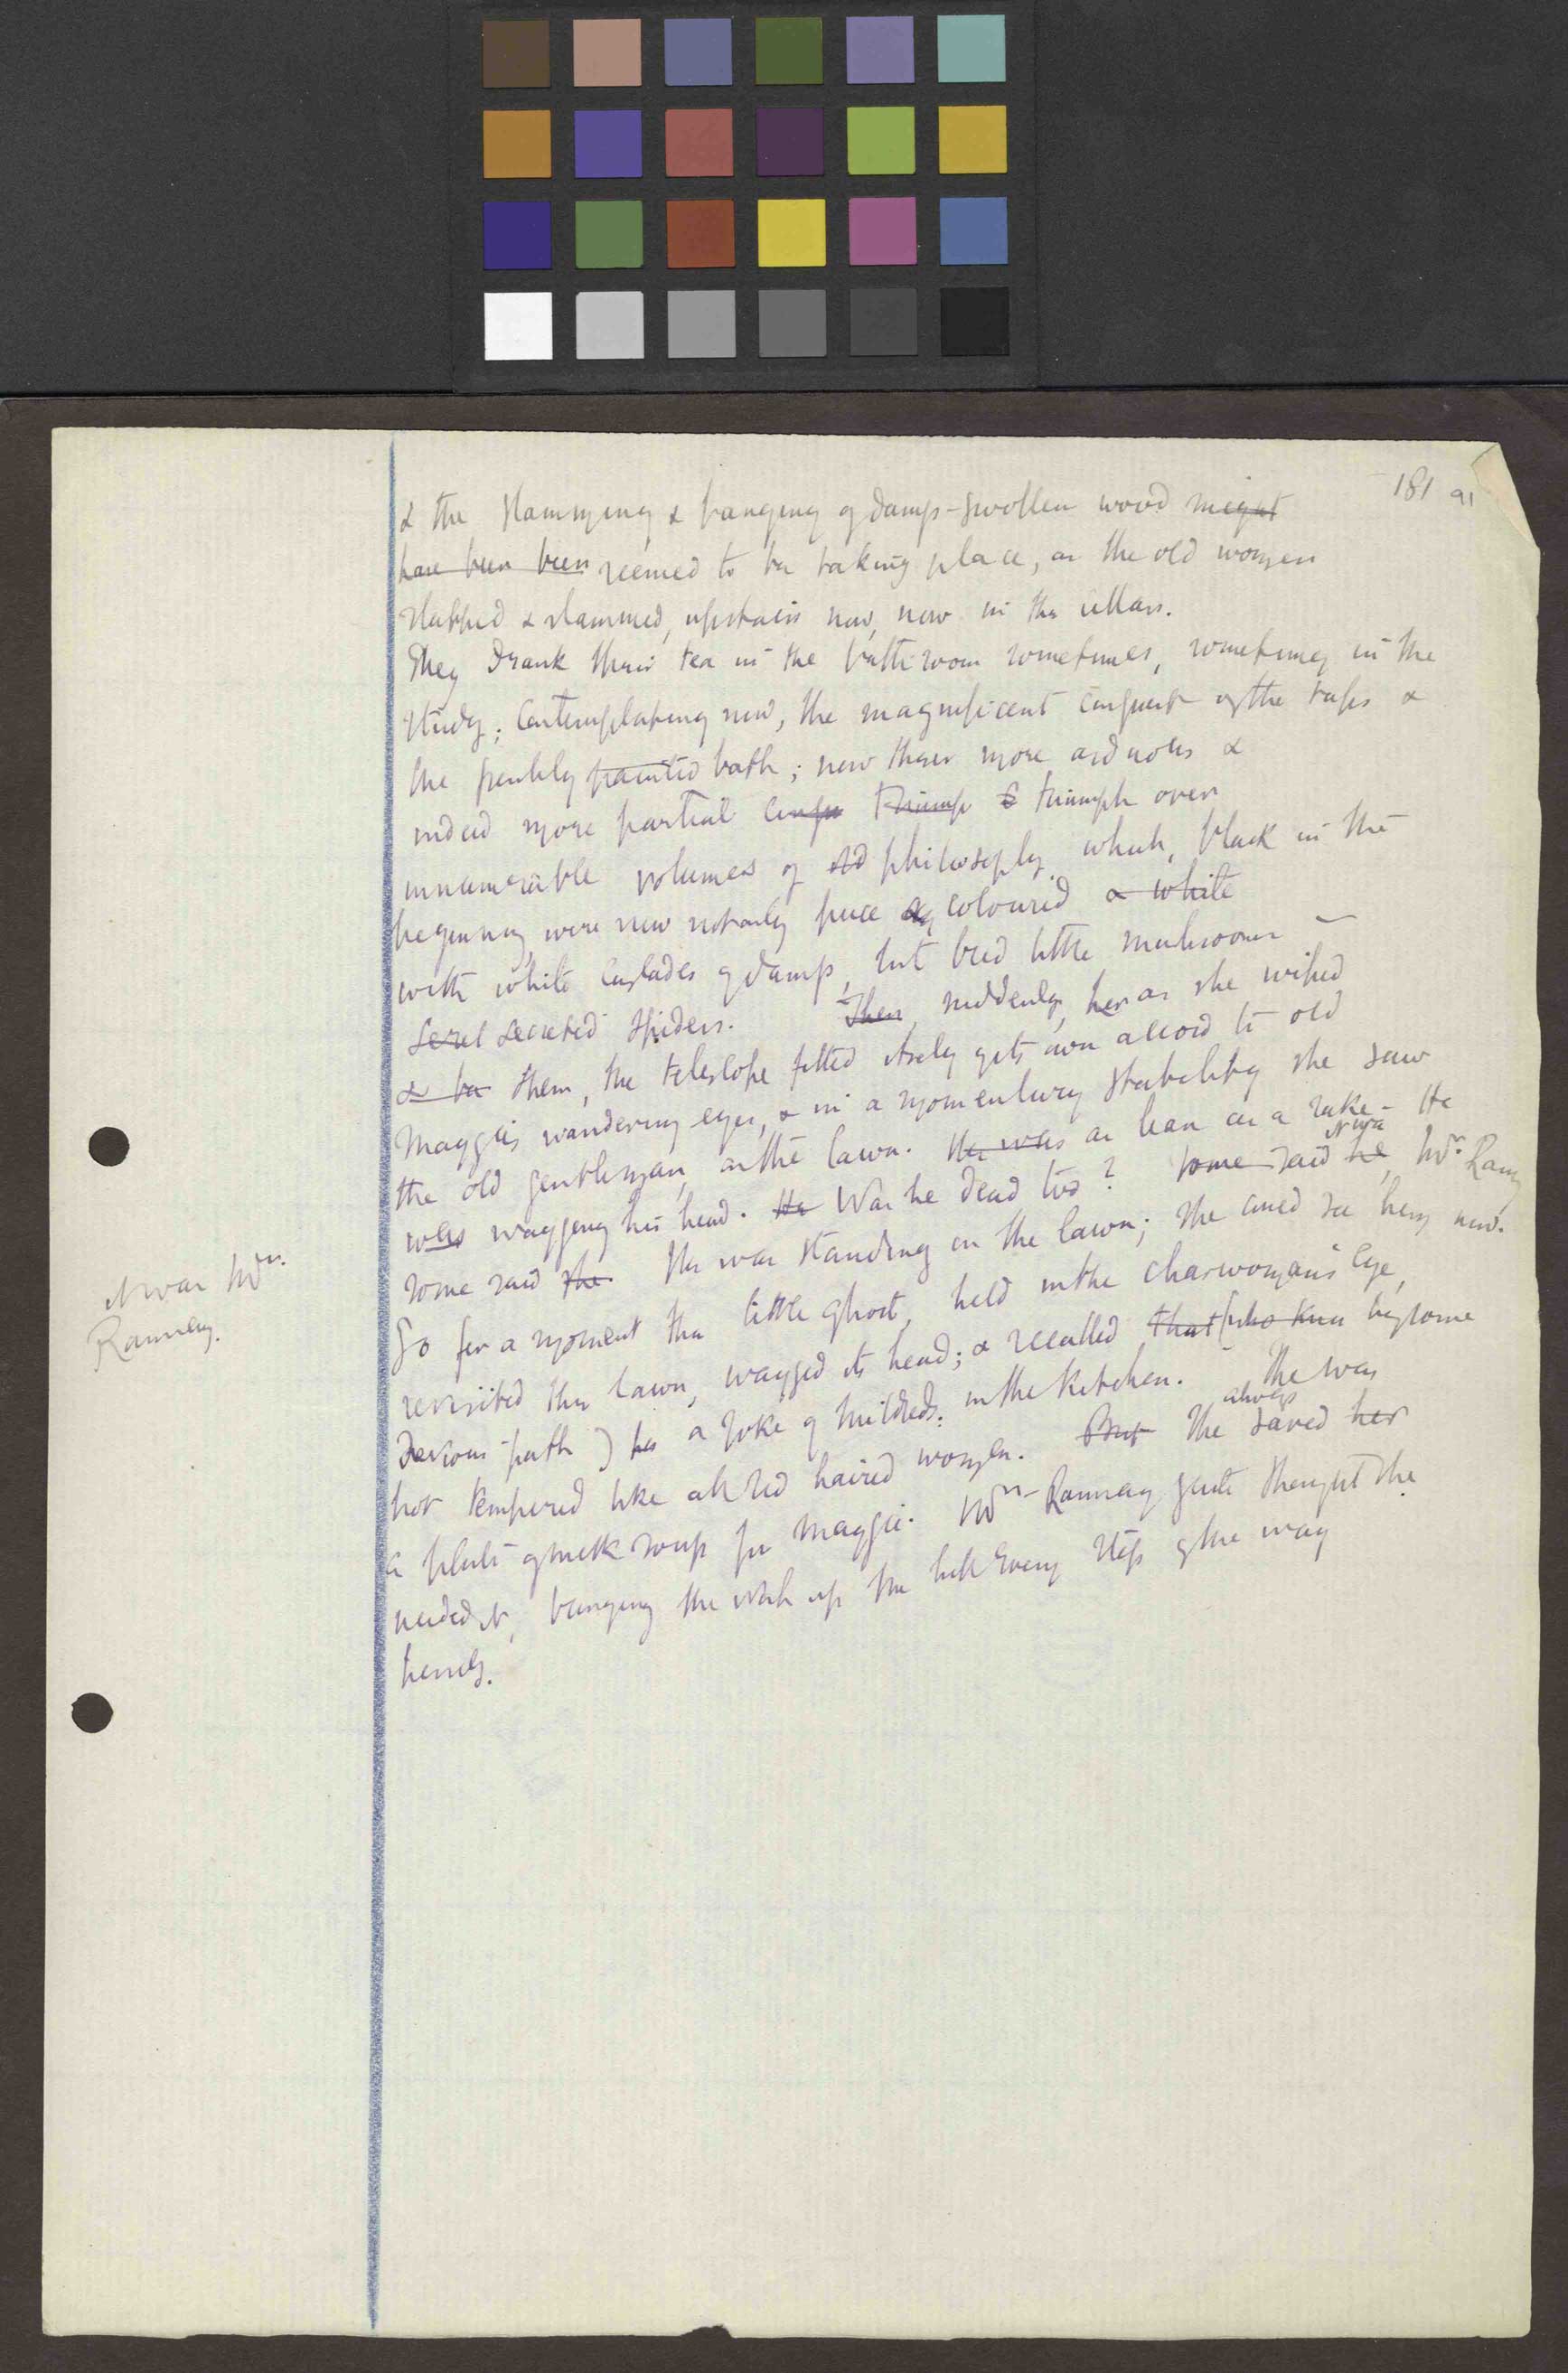 181 91
& the slamming & banging of damp-swollen wood might
have been been seemed to be taking place, as the old women
slapped & slammed, upstairs now, now in the cellars.
They drank their tea in the bathroom sometimes, sometimes in the
study; contemplating now, the magnificent conquest of the taps &
the freshly painted bath; now these more arduous &
indeed more partial triumph over
innumerable volumes of old philosophy which, black in the
beginning, were now not only puce coloured & white
with white cascades of damp, but bred little mushrooms
secreted spiders. Then, suddenly, her as she wiped
& ba them, the telescope fitted itself of its own accord to old
Maggie's wandering eyes, & in a momentary stability she saw
the old gentleman, on the lawn. He was as lean as a rake - He
was wagging his head. He Was he dead too? some said he, Mr. Ramy
some said she. He was standing on the lawn; she could see him now.
it was Mrs.
Ramsay.
So for a moment the little ghost, held in the charwoman's eye,
revisited the lawn, wagged its head; & recalled that (who knew by some
devious path) a joke of Mildred's, in the kitchen. She was
hot tempered like all red haired women. But She always saved her
a plate of milk soup for Maggie. Mrs Ramsay quite thought she
needed it, bringing the wash up the hill every step of the way
herself.